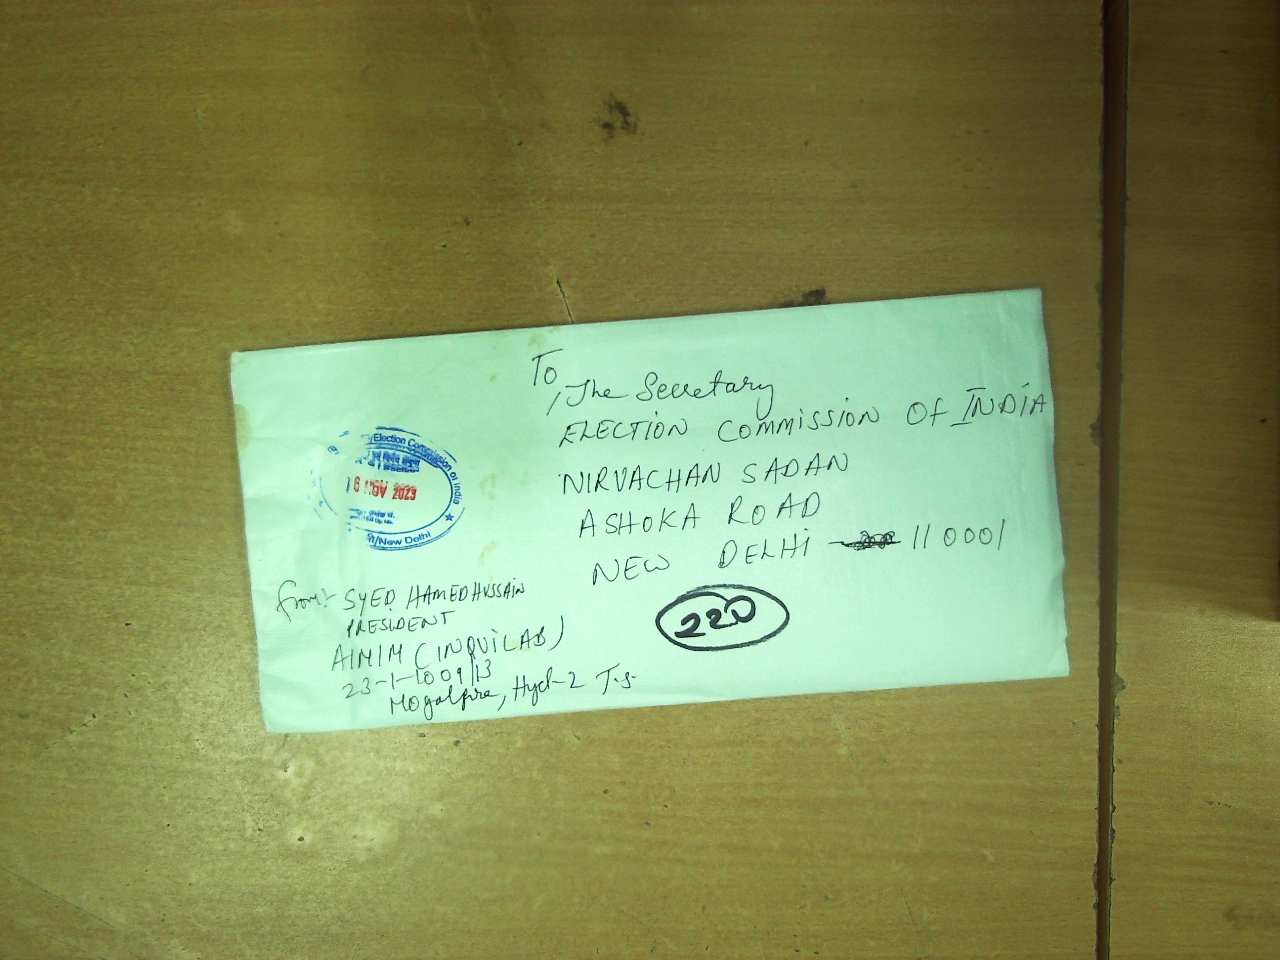 To,
The Secretary
ELECTION COMMISSION OF INDIA
NIRVACHAN SADAN
ASHOKA ROAD
NEW DELHI 110001
220
Election Commission of India
16 NOV 2023
New Delhi
from:- SYED HAMED HUSSAIN
PRESIDENT
AIMIM (INQUILAB)
23-1-1009/13
Mogalpura, Hyd-2 T.S.